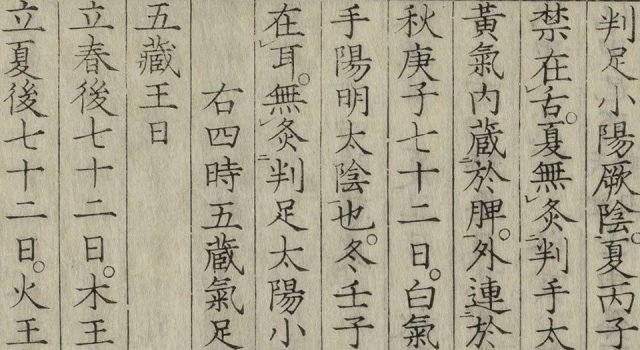 判足小陽厥陰。夏丙子
禁在舌。夏無灸判手太
黃氣内蔵於脾。外連於
秋庚子七十二日。白氣
手陽明太陰也。冬壬子
在耳。無灸判足太陽小
右四時五蔵氣足
五蔵王日
立春後七十二日。木王
立夏後七十二日。火王